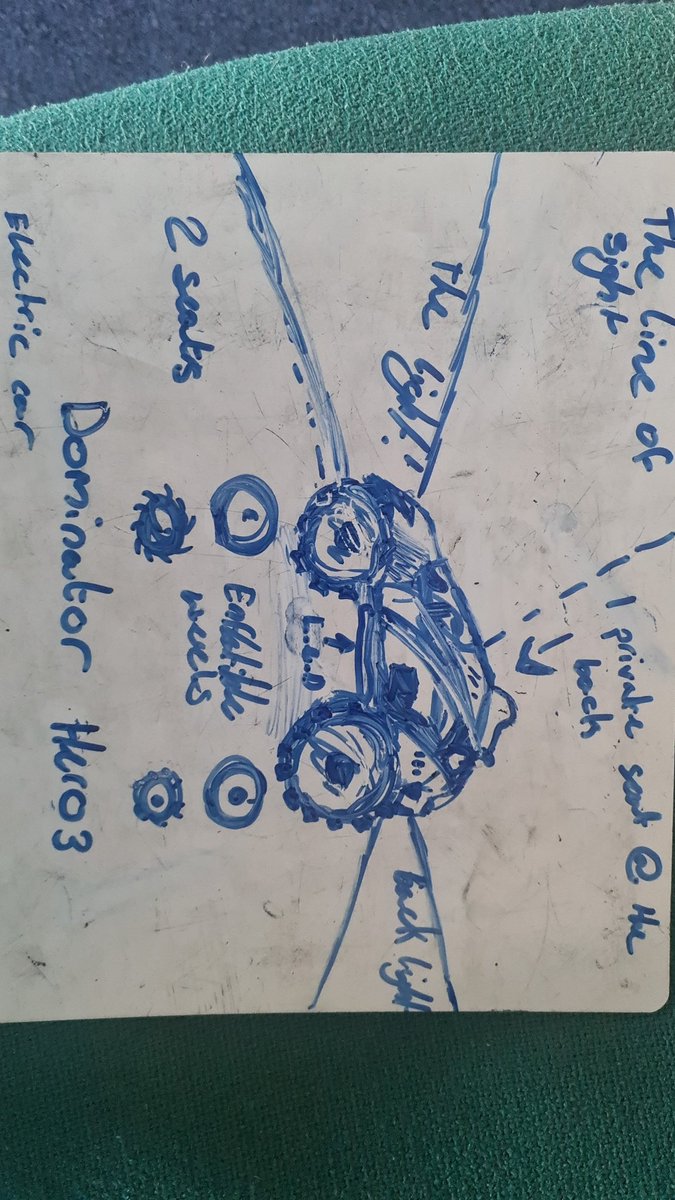 The line of
sight
private seat @ the
back
The light!!
back light
L.E.D
2 seats
weels
Dominator Hero3
Electric car